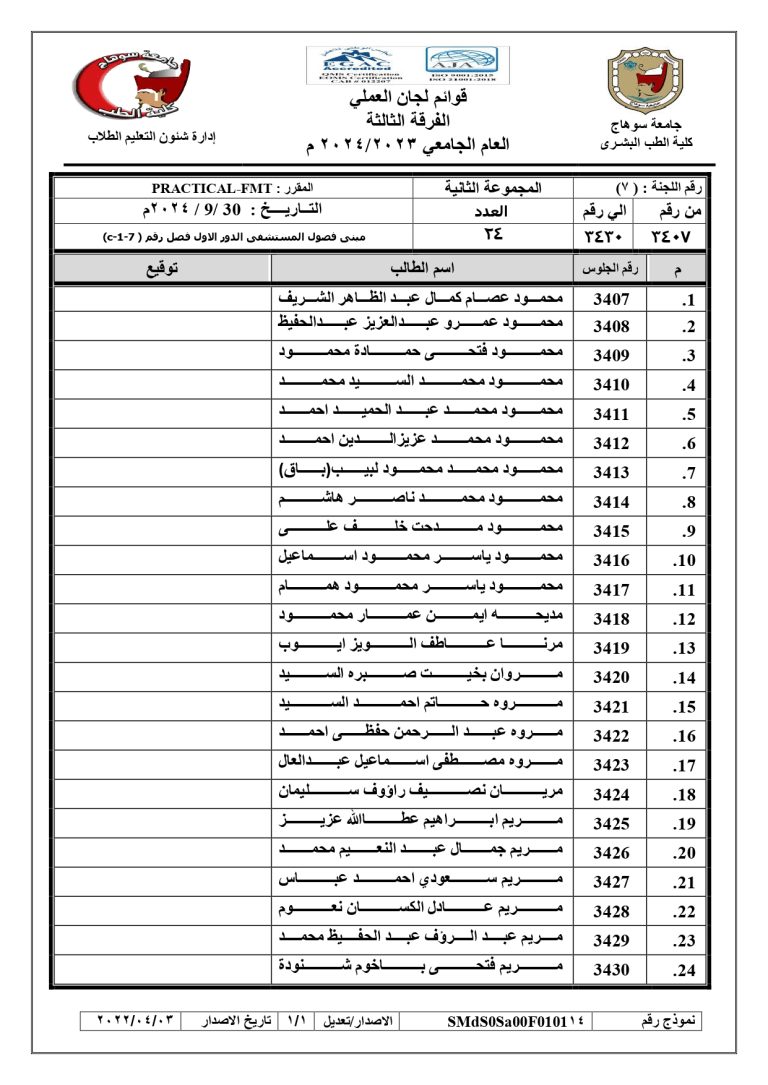 جامعة سوهاج
كلية الطب
إدارة شئون التعليم الطلاب
EGAC
Accredited
QMS Certification
EOHMS Certification
CAB # 012207
AJA
ISO 9001:2015
ISO 21001:2018
قوائم لجان العملي
الفرقة الثالثة
العام الجامعي ٢٠٢٤/٢٠٢٣ م
جامعة سوهاج
كلية الطب البشرى
رقم اللجنة : ( ٧) المجموعة الثانية المقرر : PRACTICAL-FMT
من رقم الي رقم العدد التاريخ : 30 /9 / ٢٠٢٤م
٣٤٠٧ ٣٤٣٠ ٢٤ مبنى فصول المستشفى الدور الاول فصل رقم ( c-1-7)
م رقم الجلوس اسم الطالب توقيع
1. 3407 محمود عصام كمال عبد الظاهر الشريف
2. 3408 محمود عمرو عبدالعزيز عبدالحفيظ
3. 3409 محمود فتحى حمادة محمود
4. 3410 محمود محمد السيد محمد
5. 3411 محمود محمد عبد الحميد احمد
6. 3412 محمود محمد عزيزالدين احمد
7. 3413 محمود محمد محمود لبيب(باق)
8. 3414 محمود محمد ناصر هاشم
9. 3415 محمود مدحت خلف على
10. 3416 محمود ياسر محمود اسماعيل
11. 3417 محمود ياسر محمود همام
12. 3418 مديحه ايمن عمار محمود
13. 3419 مرنا عاطف الويز ايوب
14. 3420 مروان بخيت صبره السيد
15. 3421 مروه حاتم احمد السيد
16. 3422 مروه عبد الرحمن حفظى احمد
17. 3423 مروه مصطفى اسماعيل عبدالعال
18. 3424 مريان نصيف راؤوف سليمان
19. 3425 مريم ابراهيم عطاالله عزيز
20. 3426 مريم جمال عبد النعيم محمد
21. 3427 مريم سعودي احمد عباس
22. 3428 مريم عادل الكسان نعوم
23. 3429 مريم عبد الرؤف عبد الحفيظ محمد
24. 3430 مريم فتحى باخوم شنودة
نموذج رقم SMdS0Sa00F0101١٤ الاصدار/تعديل ١/١ تاريخ الاصدار ٢٠٢٢/٠٤/٠٣